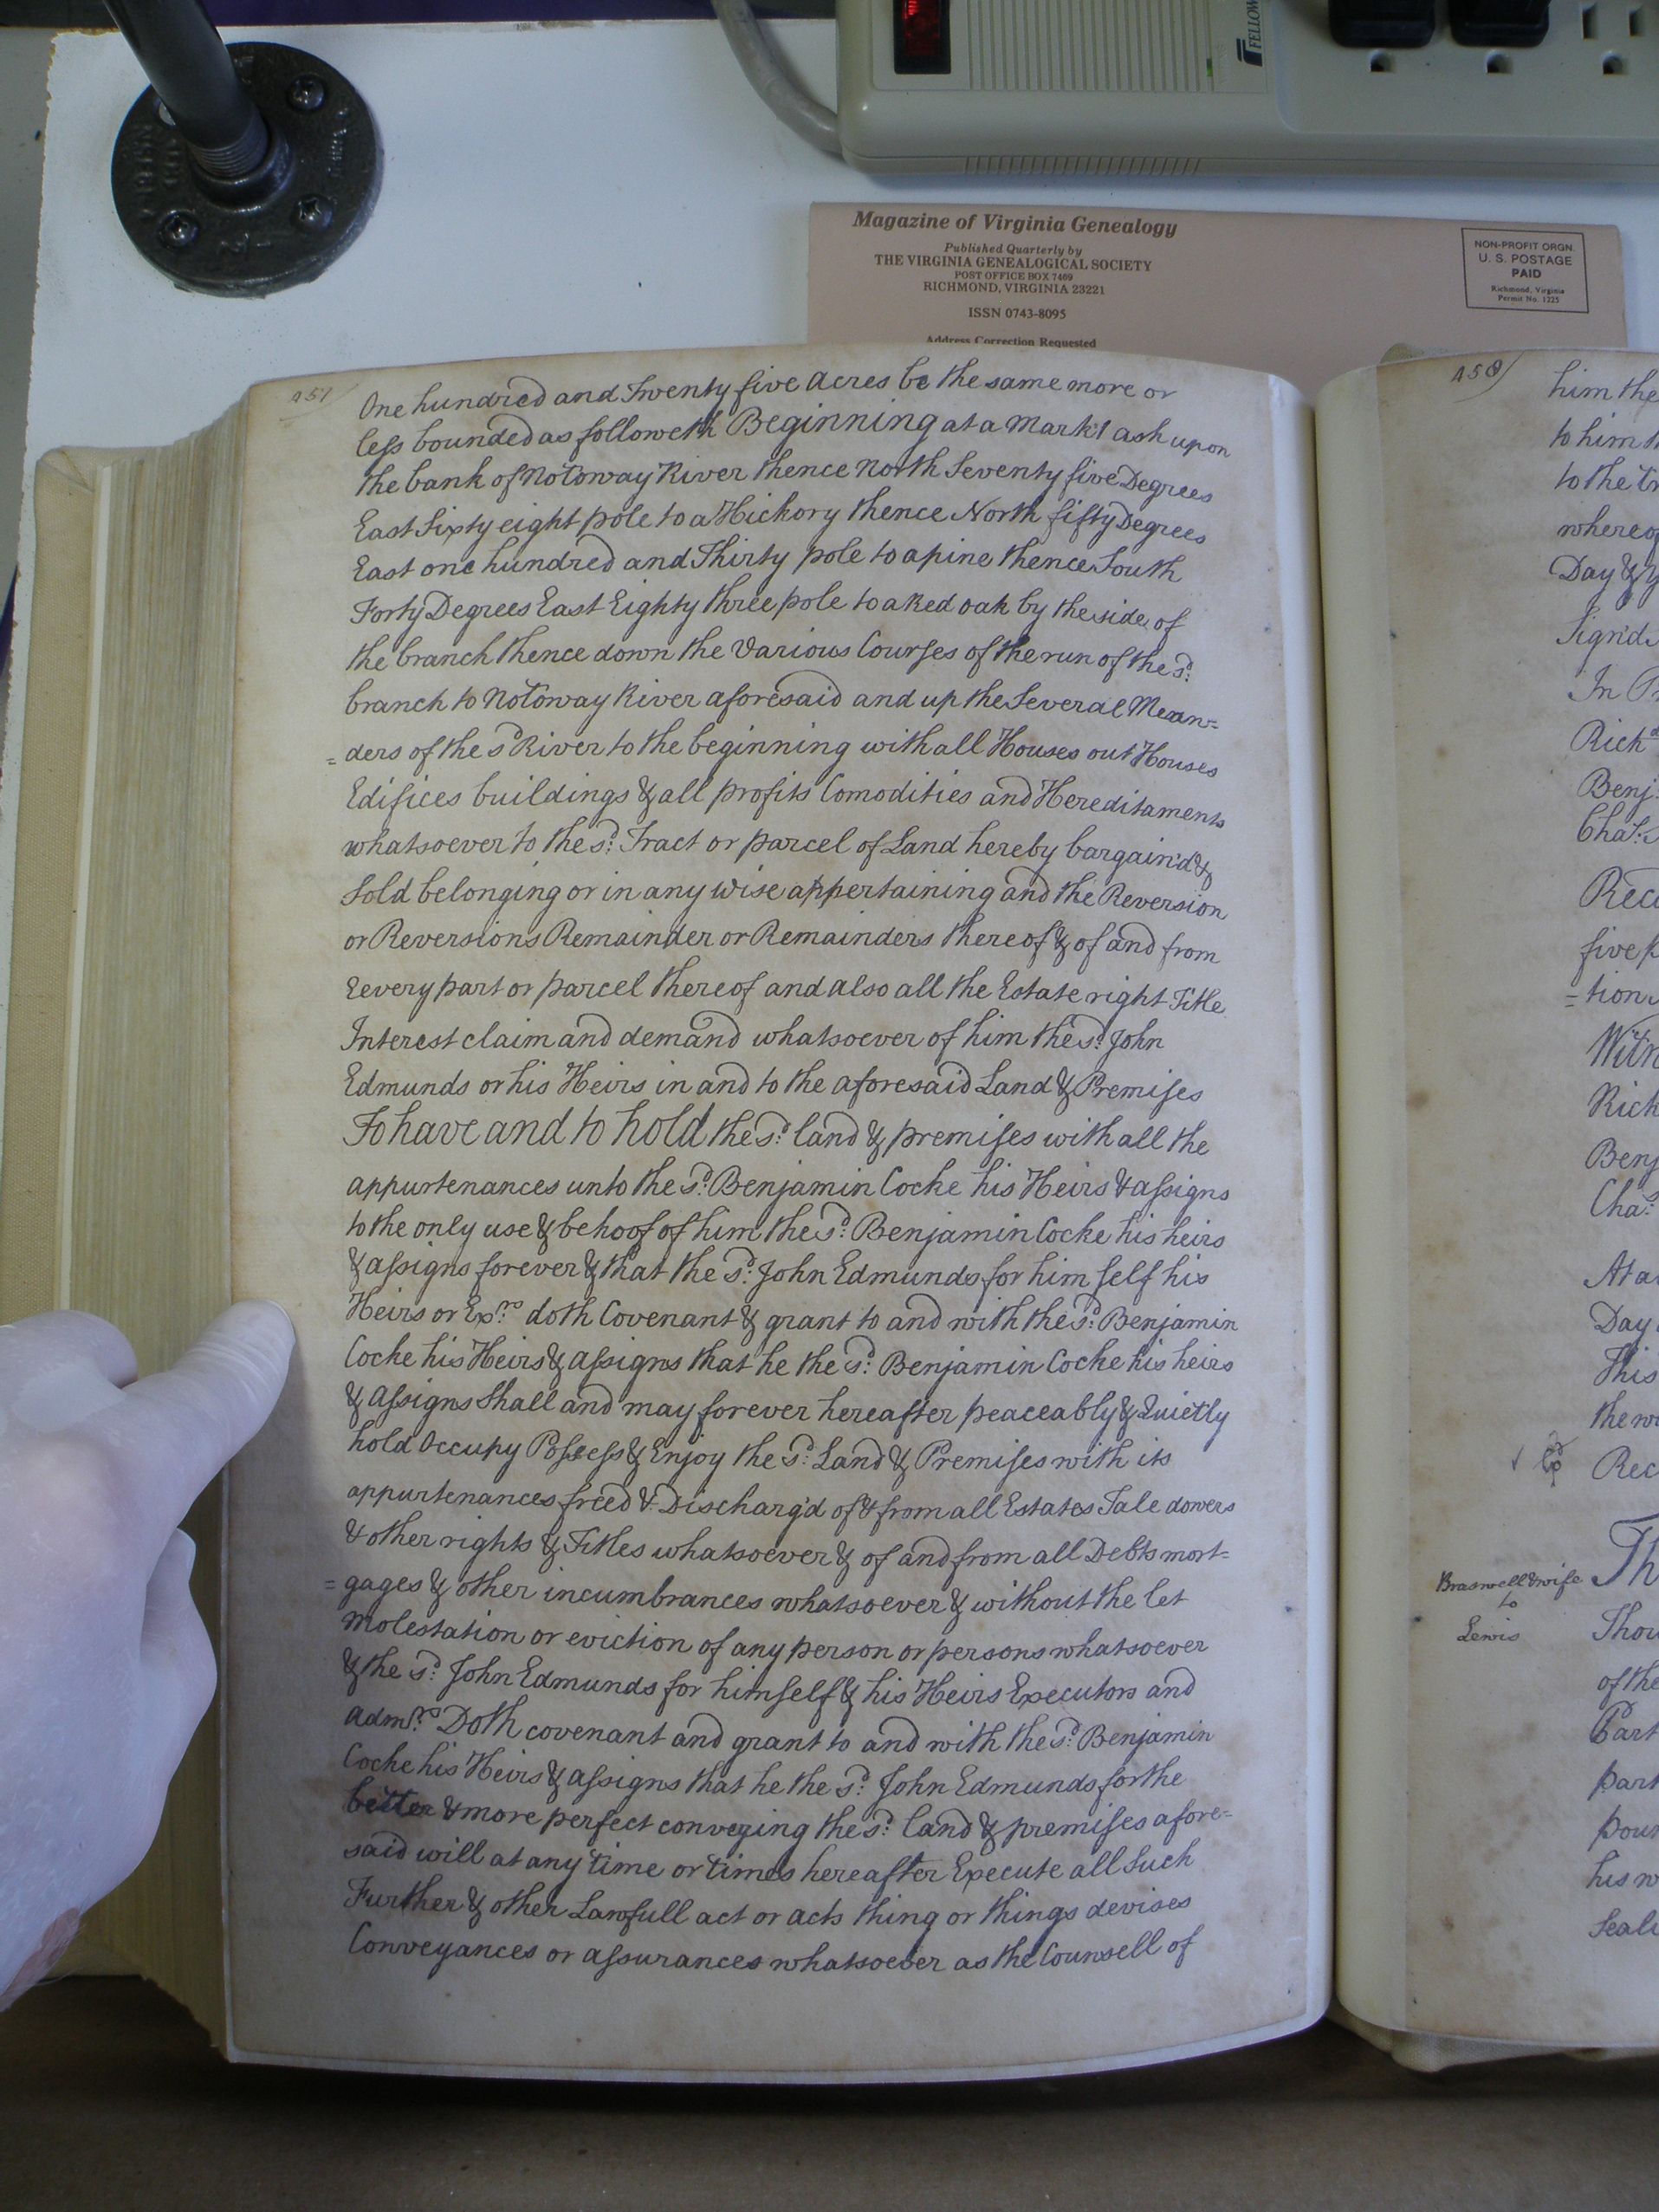 FELLOW
Magazine of Virginia Genealogy
Published Quarterly by
THE VIRGINIA GENEALOGICAL SOCIETY
POST OFFICE BOX 7469
RICHMOND, VIRGINIA 23221
ISSN 0743-8095
Address Correction Requested
NON-PROFIT ORGN.
U. S. POSTAGE
PAID
Richmond, Virginia
Permit No. 1225
457
One hundred and Twenty five Acres be the same more or
less bounded as followeth Beginning at a Mark't ash upon
the bank of Notoway River thence North Seventy five Degrees
East Sixty eight pole to a Hickory thence North fifty Degrees
East one hundred and Thirty pole to a pine thence South
Forty Degrees East Eighty three pole to a Red oak by the side of
the branch thence down the Various Courses of the run of the sd.
branch to Notoway River aforesaid and up the Several Mean=
=ders of the sd River to the beginning with all Houses out Houses
Edifices buildings & all profits Comodities and Hereditaments
whatsoever to the sd. Tract or parcel of Land hereby bargain'd &
Sold belonging or in any wise appertaining and the Reversion
or Reversions Remainder or Remainders thereof & of and from
Eevery part or parcel thereof and also all the Estate right Title
Interest claim and demand whatsoever of him the sd. John
Edmunds or his Heirs in and to the aforesaid Land & Premises
To have and to hold the sd. land & premises with all the
appurtenances unto the sd. Benjamin Cocke his Heirs & assigns
to the only use & behoof of him the sd. Benjamin Cocke his heirs
& assigns forever & that the sd. John Edmunds for him self his
Heirs or Exrs. doth Covenant & grant to and with the sd. Benjamin
Cocke his Heirs & assigns that he the sd. Benjamin Cocke his heirs
& Assigns Shall and may forever hereafter peaceably & Quietly
hold Occupy Possess & Enjoy the sd. Land & Premises with its
appurtenances freed & Discharg'd of & from all Estates Tale dowers
& other rights & Titles whatsoever & of and from all Debts mort=
=gages & other incumbrances whatsoever & without the let
Molestation or eviction of any person or persons whatsoever
& the sd. John Edmunds for himself & his Heirs Executors and
Admrs. Doth covenant and grant to and with the sd. Benjamin
Cocke his Heirs & assigns that he the sd. John Edmunds for the
better & more perfect conveying the sd. land & premises afore=
said will at any time or times hereafter Execute all Such
Further & other Lawfull act or acts thing or things devises
Conveyances or assurances whatsoever as the Counsell of
458
him the
to him
to the
whereof
Day &
Sign'd
In
Richd
Benj.
Chas.
Rec
five
=tion
Witn
Rich
Benj
Chas.
At a
Day
This
the
Rec
Braswell & wife
to
Lewis
Th
Thou
of the
Part
part
poun
his
Seal